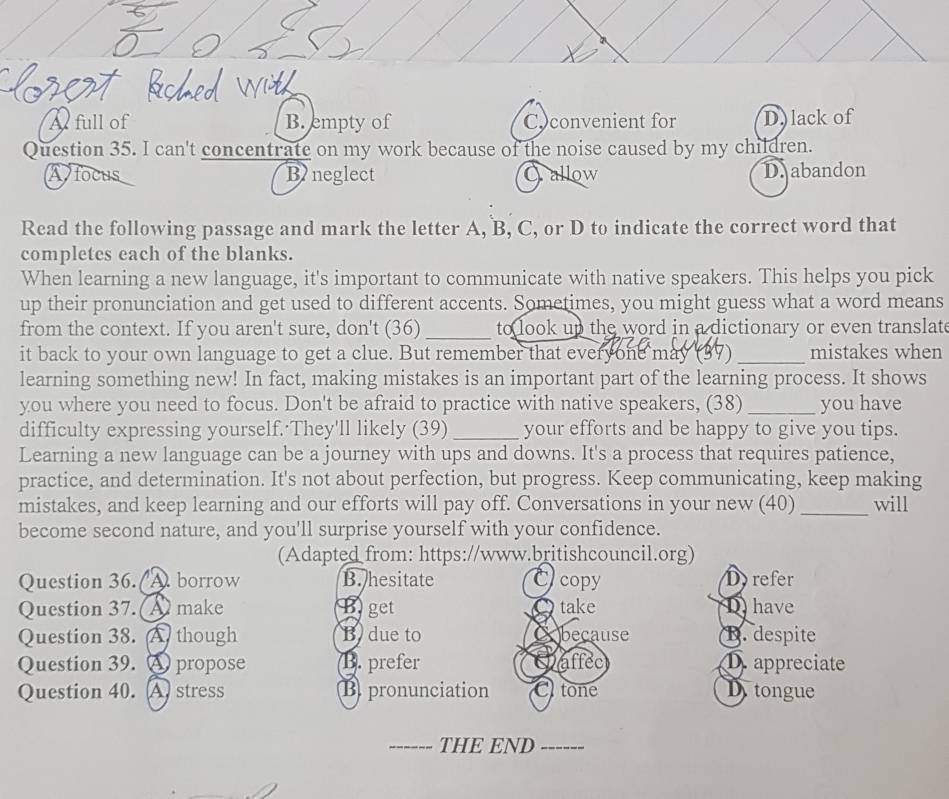 Closest
with
A. full of B. empty of C. convenient for D. lack of
Question 35. I can't concentrate on my work because of the noise caused by my children.
A. focus B. neglect C. allow D. abandon
Read the following passage and mark the letter A, B, C, or D to indicate the correct word that
completes each of the blanks.
When learning a new language, it's important to communicate with native speakers. This helps you pick
up their pronunciation and get used to different accents. Sometimes, you might guess what a word means
from the context. If you aren't sure, don't (36) ______ to look up the word in a dictionary or even translate
it back to your own language to get a clue. But remember that everyone may (37) ______ mistakes when
learning something new! In fact, making mistakes is an important part of the learning process. It shows
you where you need to focus. Don't be afraid to practice with native speakers, (38) ______ you have
difficulty expressing yourself. They'll likely (39) ______ your efforts and be happy to give you tips.
Learning a new language can be a journey with ups and downs. It's a process that requires patience,
practice, and determination. It's not about perfection, but progress. Keep communicating, keep making
mistakes, and keep learning and our efforts will pay off. Conversations in your new (40) ______ will
become second nature, and you'll surprise yourself with your confidence.
(Adapted from: https://www.britishcouncil.org)
Question 36. A. borrow B. hesitate C. copy D. refer
Question 37. A. make B. get C. take D. have
Question 38. A. though B. due to C. because D. despite
Question 39. A. propose B. prefer C. affect D. appreciate
Question 40. A. stress B. pronunciation C. tone D. tongue
------ THE END ------